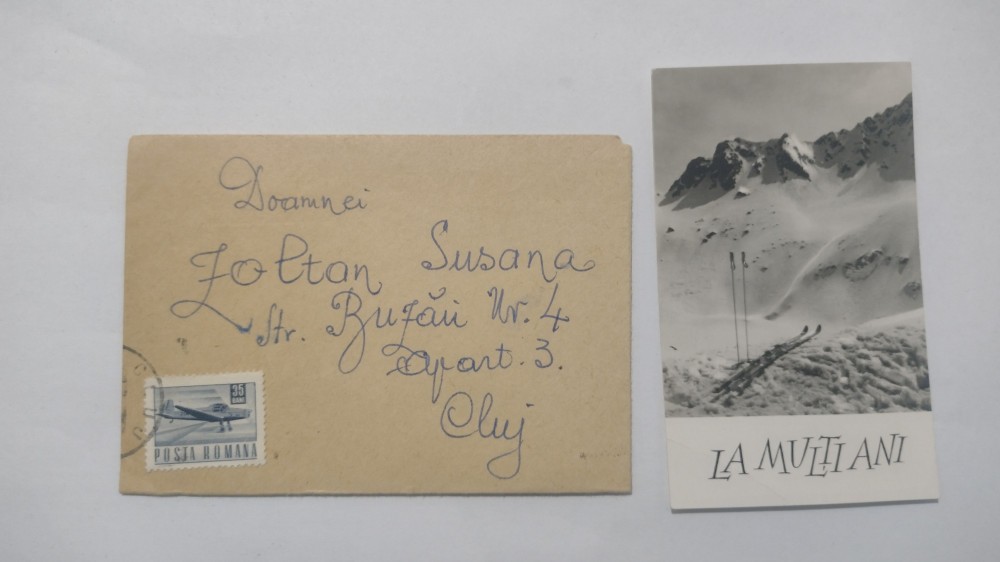 Doamnei
Zoltan Susana
Str. Buzău Nr. 4
apart. 3.
Cluj
35
BANI
POSTA ROMANA
LA MULȚI ANI